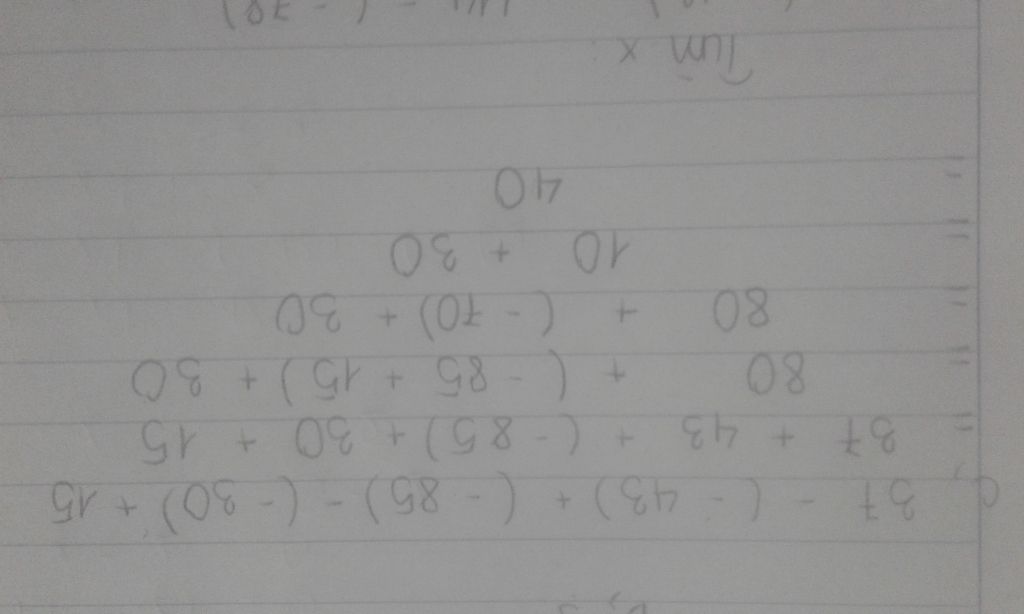 c, 37 - (- 43) + (- 85) - (- 30) + 15
= 37 + 43 + (- 85) + 30 + 15
= 80 + (- 85 + 15) + 30
= 80 + (- 70) + 30
= 10 + 30
= 40
Tìm x